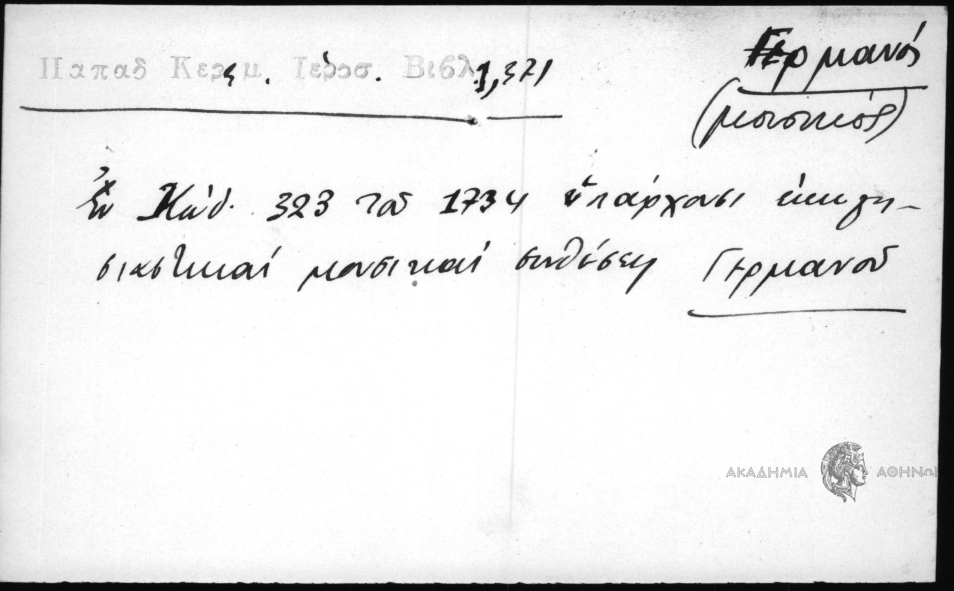 Παπαδ Κερ. μ. Ιεροσ. Βιβλ 1,371
Γερμανός
(μουσικός)
Ἐν Κώδ. 323 τοῦ 1734 ὑπάρχουσι ἐκκλη-
σιαστικαί μουσικαί συνθέσεις Γερμανοῦ
ΑΚΑΔΗΜΙΑ ΑΘΗΝΩΝ